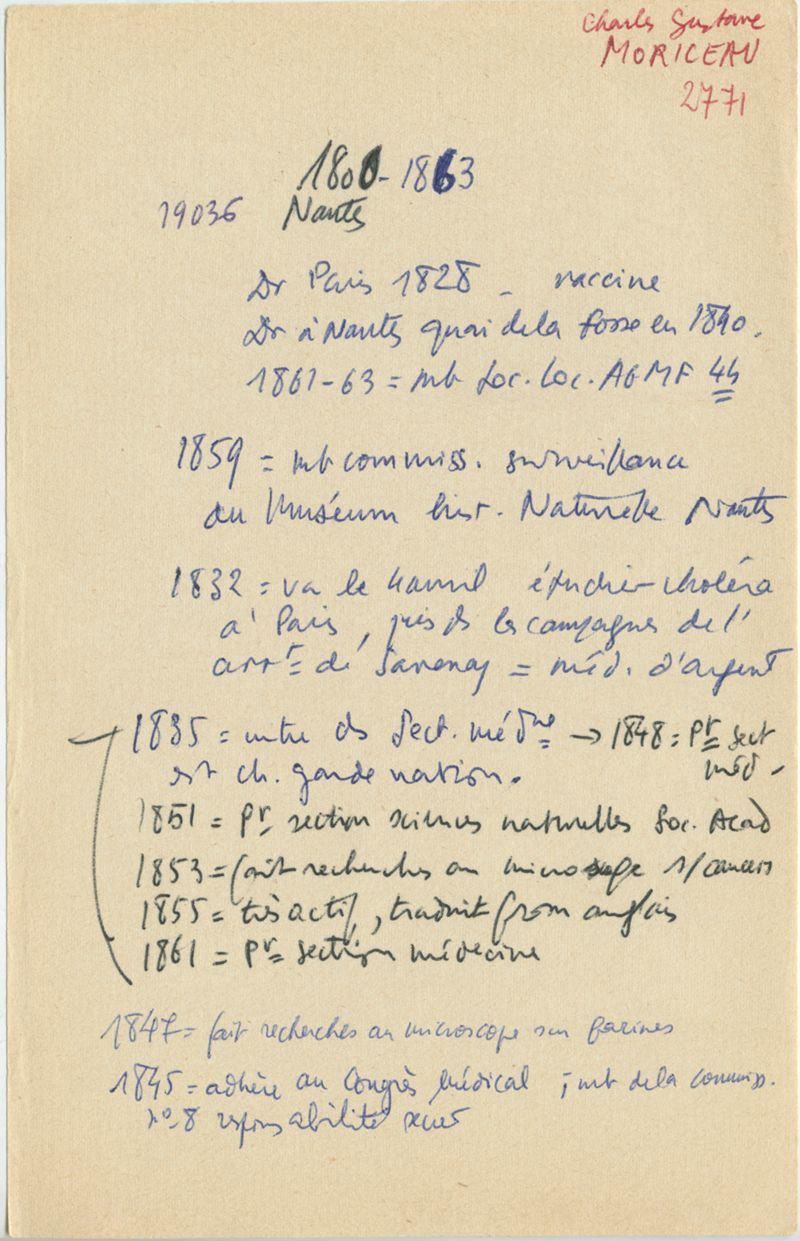 Charles Gustave
MORICEAU
2771
1800 - 1863
19036 Nantes
Dr Paris 1828 - vaccine
Dr à Nantes quai de la Fosse en 1840.
1861-63 = mb Soc. Loc. AGMF 44
1859 = mb commiss. surveillance
du Muséum hist. Naturelle Nantes
1832 = va le 4 avril étudier choléra
à Paris, puis ds les campagnes de l'
arrt de Savenay = méd. d'argent
1835 = entre ds Sect. médne → 1848 = Pr sect
est ch. garde nation. méd -
1851 = Pr section sciences naturelles Soc. Acad
1853 = fait recherches au microscope s/cancers
1855 = très actif, traduit from anglais
1861 = Pr section médecine
1847 = fait recherches au microscope sur farines
1845 = adhère au Congrès médical ; mb de la commiss.
no 8 responsabilité